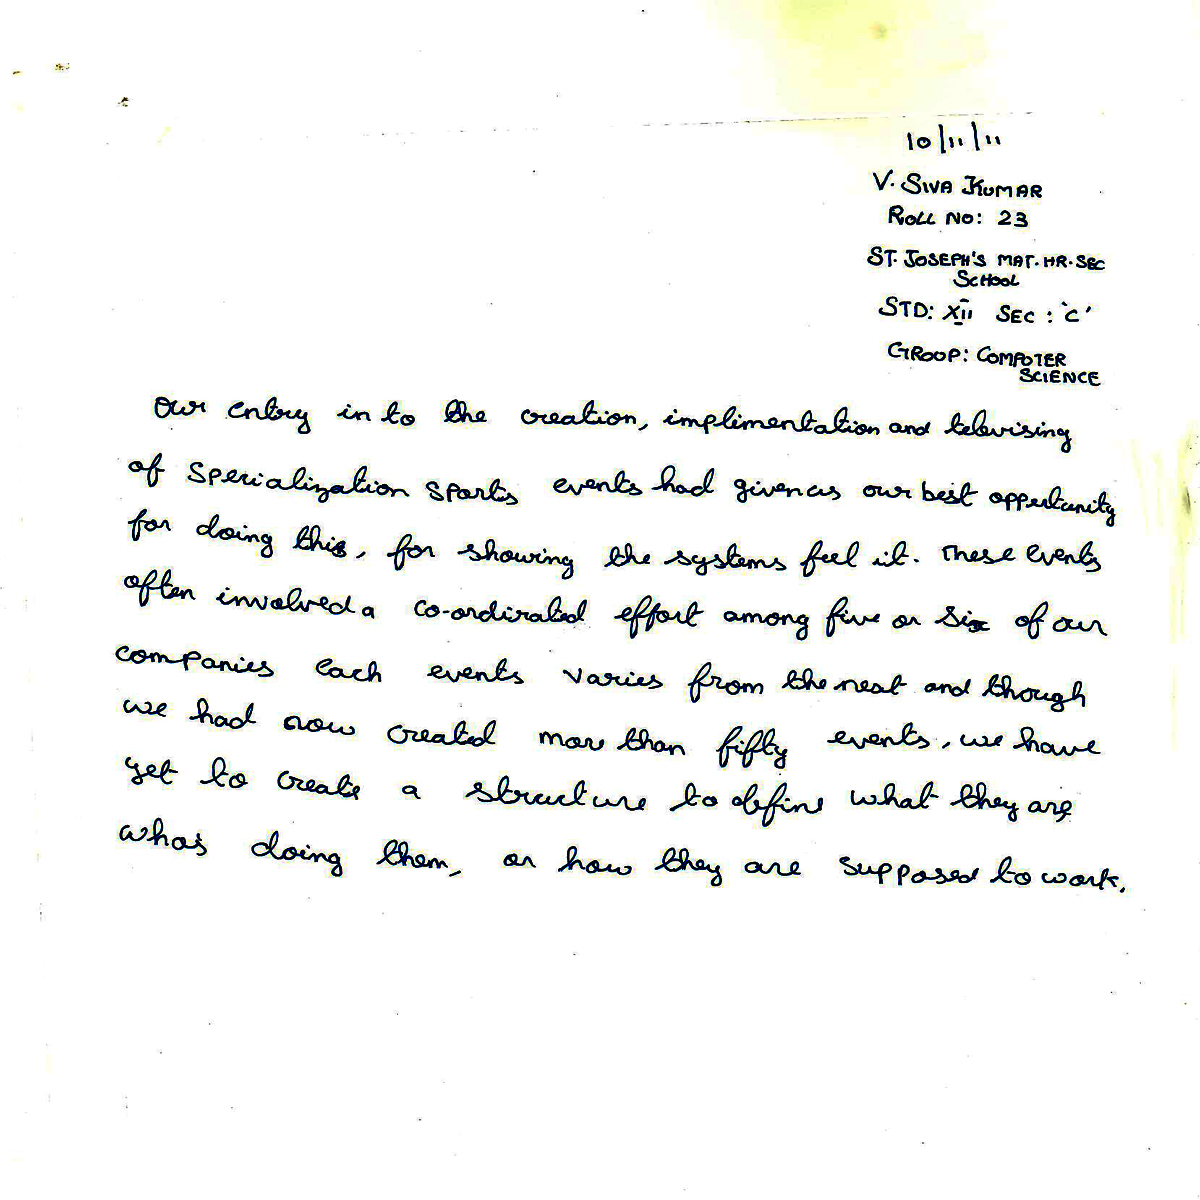 10/11/11
V. SIVA KUMAR
ROLL NO: 23
ST. JOSEPH'S MAT. HR. SEC
SCHOOL
STD: XII SEC : 'C'
GROUP: COMPUTER
SCIENCE
Our entry in to the creation, implimentation and televising
of specialization sports events had given us our best oppertunity
for doing this, for showing the systems feel it. These events
often involved a co-ordirated effort among five or six of our
companies each events varies from the next and though
we had now created more than fifty events, we have
yet to create a structure to define what they are
whos doing them, or how they are supposed to work.